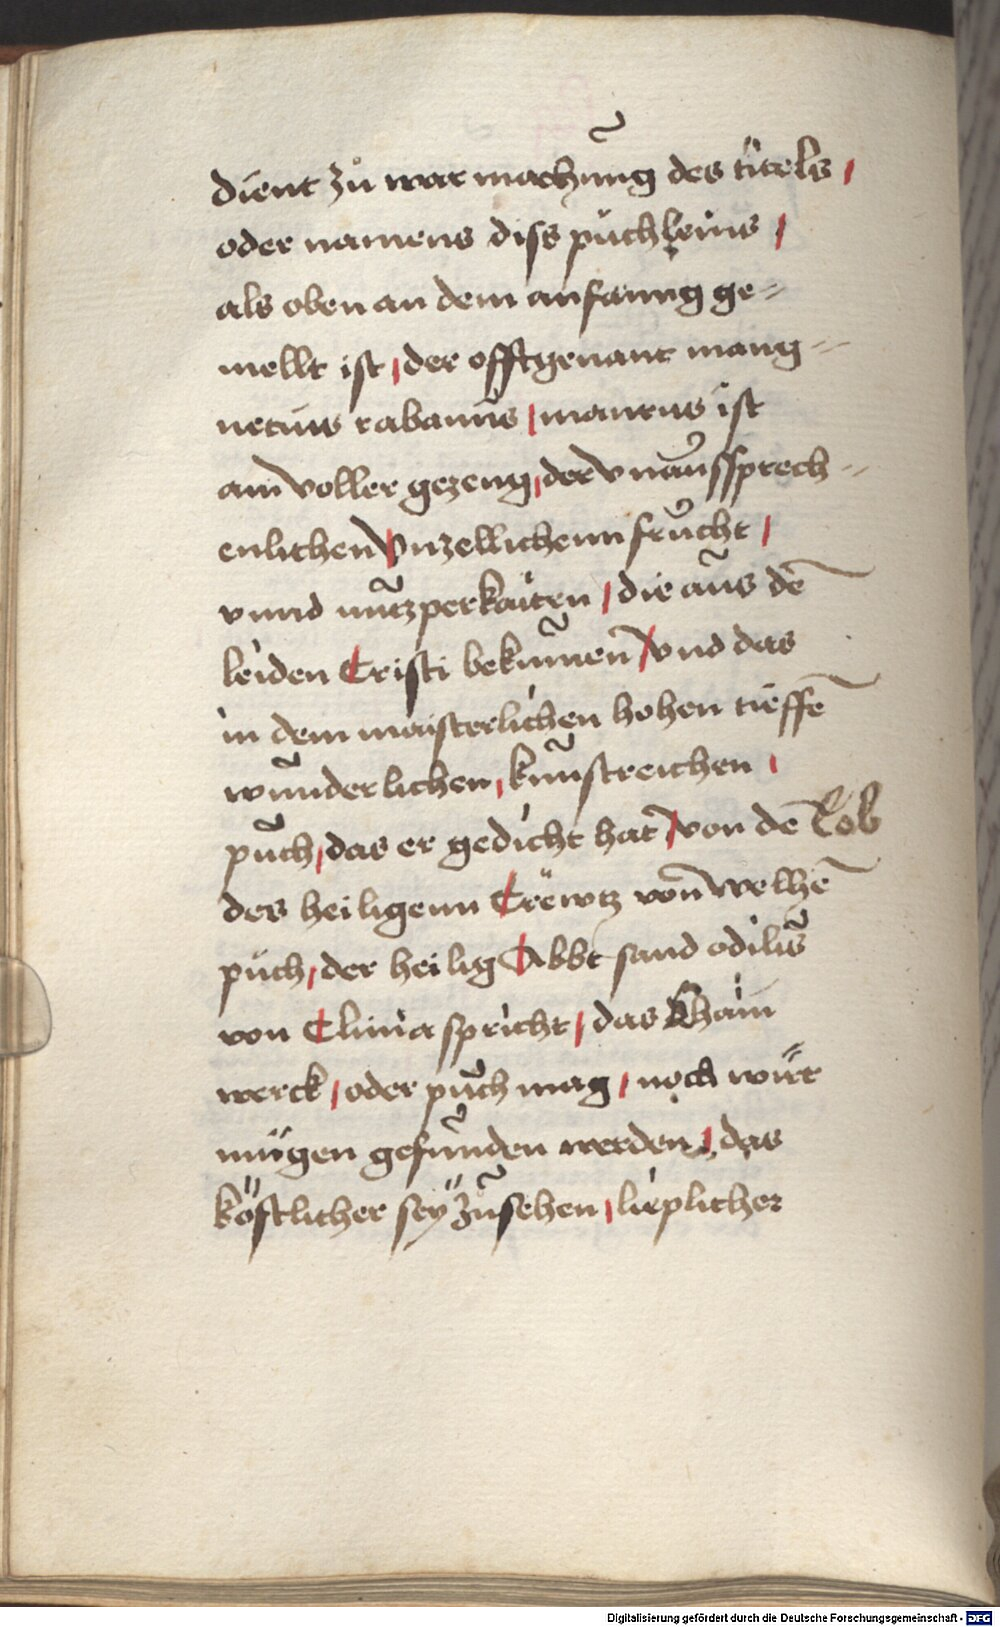 dient zů war machũng des tïtels /
oder namens diss püchleins /
als oben an dem anfanng ge=
mellt ist / der offtgenant mang=
netius rabanus / maurus ist
ain voller gezeug / der vnaůssprech=
enlichen / vnzellichenn frůcht /
vnnd nũtzperkaiten / die aũs dē
leiden Cristi bekũmen / vnd das
in dem maisterlichen hohen tieffē
wũnderlichen / kũnstreichen /
pũch / das er gedicht hat / von dē Lob
des heiligenn Crëwtz von welhē
půch / der heilig Abbt sand odilũs
von Clunia spricht / das khain
werck / oder půch mag / noch wirt
mügen gefũnden werden / das
köstlicher seÿ zũsehen / lieplicher
Digitalisierung gefördert durch die Deutsche Forschungsgemeinschaft - DFG